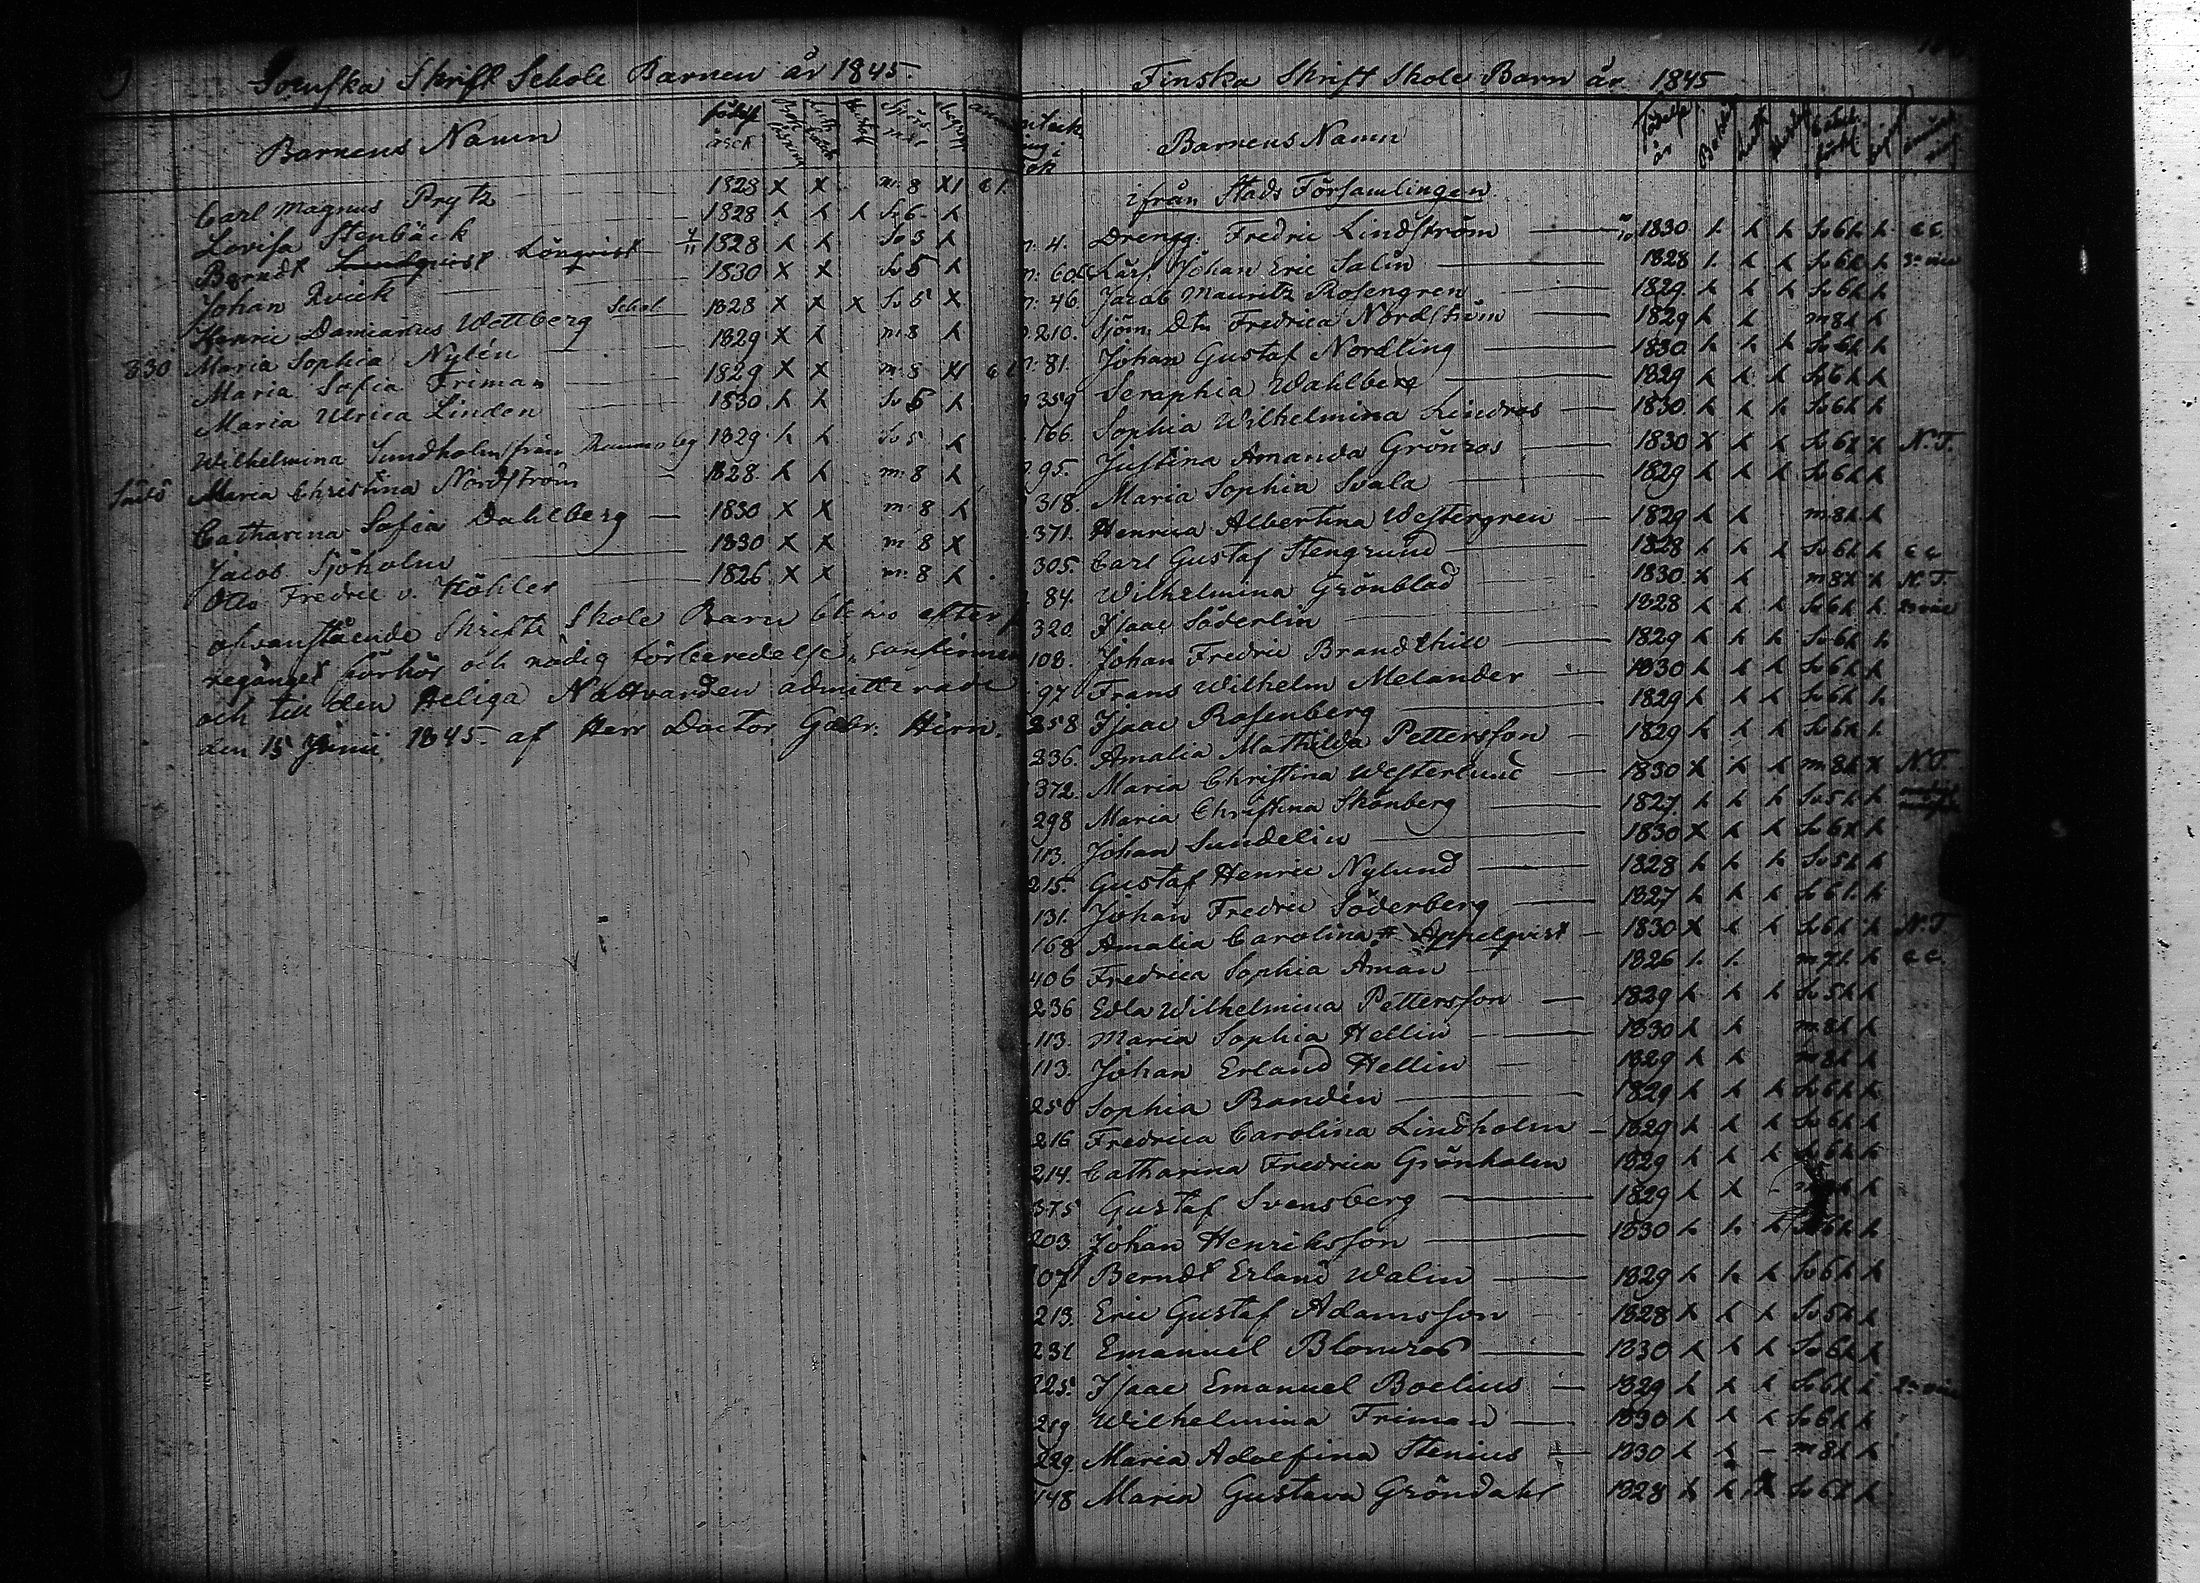 Svenska Skrift Schole Barnen år 1845.
Barnens Namn födels året
Carl Magnus Prytz 1828 x x m: 8 x1 c1.
Lovisa Stenbäck 1828 x x x Sv 6 x
Berndt Lundqvist Lönqvist 1828 x x Sv 3 x
Johan Qvick 1830 x x Sv 5 x
Henric Damianus Wettberg Schol 1828 x x x Sv 5 x
830 Maria Sophia Nylén 1829 x x m: 8 x
Maria Sofia Friman 1829 x x m: 8 x1
Maria Ulrica Linden 1830 x x Sv 5 x
Wilhelmina Sundholm från 1829 x x Sv 5 x
Maria Christina Nordström 1828 x x m: 8 x
Catharina Sofia Dahlberg 1830 x x m: 8 x
Jacob Sjöholm 1830 x x m 8 x
Otto Fredric v. Köhler 1826 x x m: 8 x
ofvanstående Skrift Skole Barn blevo efter
regånget förhör och nödig förberedelse,
och till den Heliga Nattvarden admitterade
den 15 Junii 1845. af Herr Doctor Gabr. Hirn.
Finska Skrift Skole Barn år 1845
Barnens Namn födelse år
ifrån Stads Församlingen
4. Dreng. Fredric Lindström 1830 x x x Sv 6 x x c c.
60 Lärl. Johan Eric Salin 1828 x x x Sv 6 x x
46 Jacob Mauritz Rosengren 1829 x x x Sv 6 x x
210. Sjöm. Dtr Fredrica Nordström 1829 x x m 8 x x
81. Johan Gustaf Nordling 1830 x x x Sv 6 x x
359 Seraphia Wahlberg 1829 x x x Sv 6 x x
166. Sophia Wilhelmina Lindros 1830 x x x Sv 6 x x
95. Justina Amanda Grönros 1830 x x x Sv 6 x x N.T.
318. Maria Sophia Svala 1829 x x x Sv 6 x x
371. Henrica Albertina Westergren 1829 x x m 8 x x
305. Carl Gustaf Stengrund 1828 x x x Sv 6 x x c c
84. Wilhelmina Grönblad 1830 x x m 8 x x N.T.
320 Isaac Söderlin 1828 x x x Sv 6 x x
108. Johan Fredric Brandthill 1829 x x x Sv 6 x x
97 Frans Wilhelm Melander 1830 x x x Sv 6 x x
258 Isaac Rosenberg 1829 x x x Sv 6 x x
236. Amalia Mathilda Pettersson 1829 x x x Sv 6 x x
372. Maria Christina Westerlund 1830 x x x m 8 x x N.T.
298 Maria Christina Skönberg 1827 x x x Sv 5 x x
113. Johan Sundelin 1830 x x x Sv 6 x x
215. Gustaf Henric Nylund 1828 x x x Sv 5 x x
131. Johan Fredric Söderberg 1827 x x x Sv 6 x x
168 Amalia Carolina Appelqvist 1830 x x x Sv 6 x x N.T.
406 Fredrica Sophia Åman 1826 x x m 7 x x c c.
236 Edla Wilhelmina Pettersson 1829 x x x Sv 5 x x
113. Maria Sophia Hellin 1830 x x m 8 x x
113. Johan Erland Hellin 1829 x x m 8 x x
250 Sophia Randén 1829 x x x Sv 6 x x
216 Fredrica Carolina Lindholm 1829 x x x Sv 6 x x
214. Catharina Fredrica Grönholm 1829 x x x Sv 6 x x
375 Gustaf Svensberg 1829 x x
203. Johan Henriksson 1830 x x x Sv 6 x x
07 Berndt Erland Walin 1829 x x x Sv 6 x x
213. Eric Gustaf Adamsson 1828 x x x Sv 5 x x
231 Emanuel Blomros 1830 x x x Sv 6 x x
225. Isaac Emanuel Boelius 1829 x x x Sv 6 x x
219 Wilhelmina Friman 1830 x x x Sv 6 x x
229. Maria Adolfina Stenius 1830 x x – m 8 x x
148 Maria Gustava Gröndahl 1828 x x x Sv 6 x x